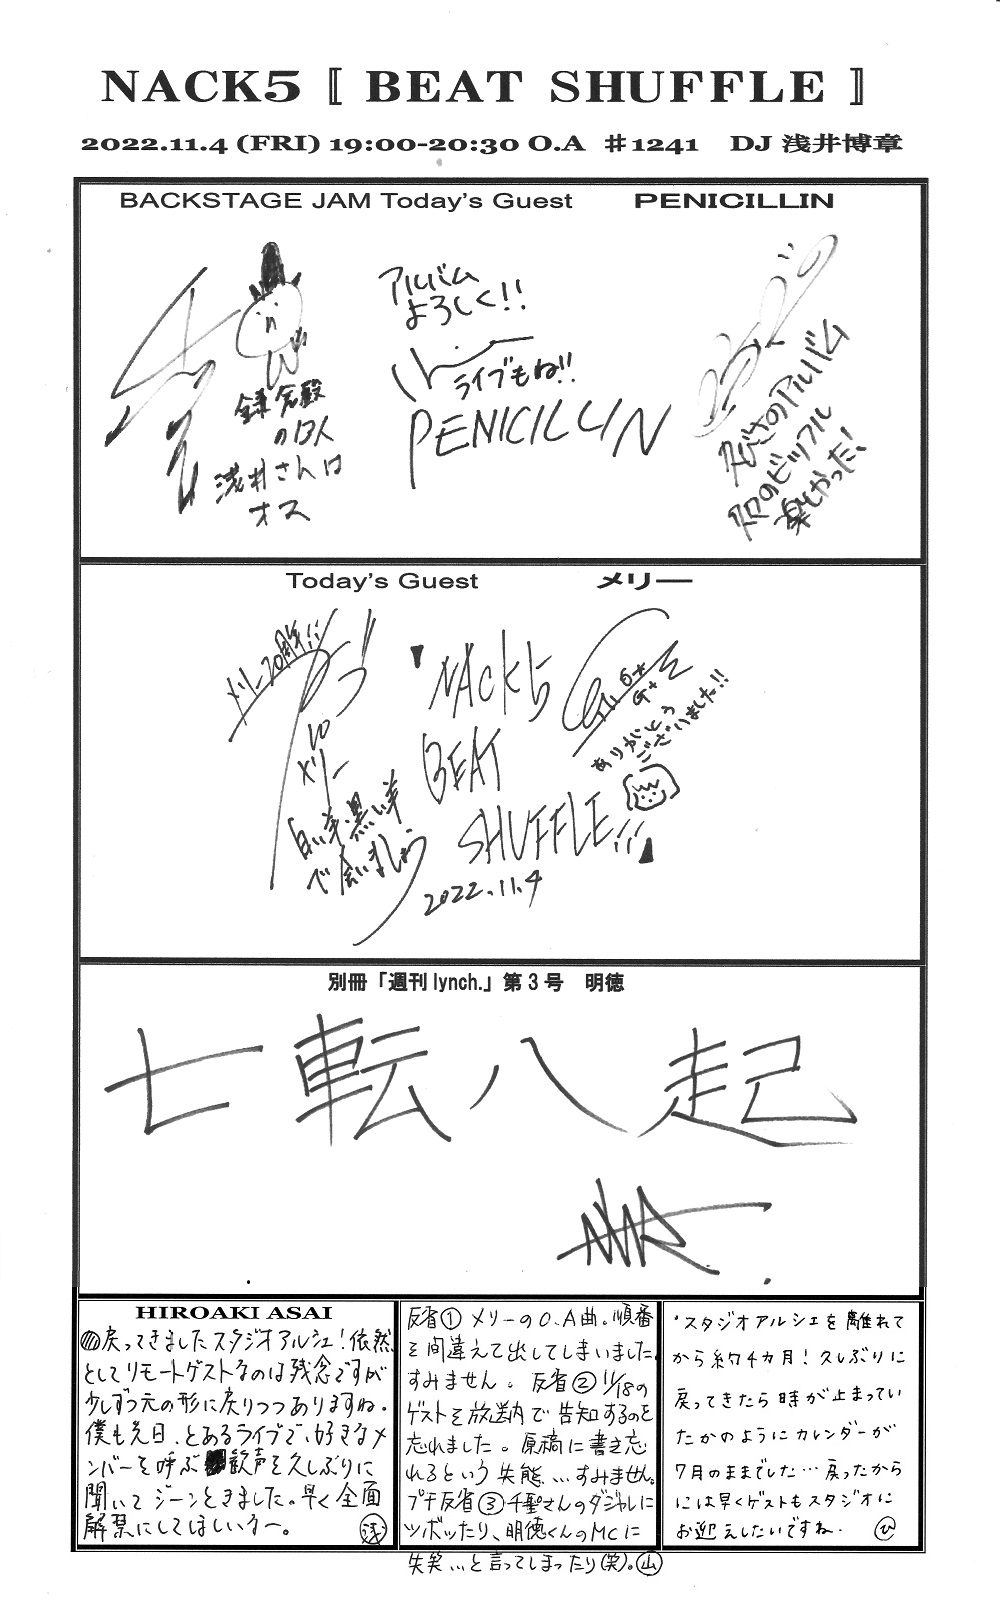 NACK5 〚 BEAT SHUFFLE 〛
2022.11.4 (FRI) 19:00-20:30 O.A #1241 DJ 浅井博章
BACKSTAGE JAM Today's Guest PENICILLIN
鎌倉殿
の13人
浅井さんは
オス
アルバム
よろしく!!
ライブもね!!
PENICILLIN
のアルバム
のビッフル
楽しかった!
Today's Guest メリー
メリー20周年!!
メリー
白い羊、黒い羊
で会いましょう
NACK5
BEAT
SHUFFLE!!
2022.11.4
ありがとう
ございました!!
別冊「週刊lynch.」第3号 明徳
七転八起
HIROAKI ASAI
戻ってきましたスタジオアルシェ!依然
としてリモートゲストなのは残念ですが
少しずつ元の形に戻りつつありますね。
僕も先日、とあるライブで、好きなメ
ンバーを呼ぶ歓声を久しぶりに
聞いてジーンときました。早く全面
解禁にしてほしいなー。 浅
反省① メリーのO.A曲。順番
を間違えて出してしまいました
すみません。反省② 11/18の
ゲストを放送内で告知するのを
忘れました。原稿に書き忘
れるという失態…すみません。
プチ反省③ 千聖さんのダジャレに
ツボッたり、明徳くんのMCに
失笑…と言ってしまったり(笑)。山
・スタジオアルシェを離れて
から約4カ月!久しぶりに
戻ってきたら時が止まってい
たかのようにカレンダーが
7月のままでした…戻ったから
には早くゲストもスタジオに
お迎えしたいですね. ひ